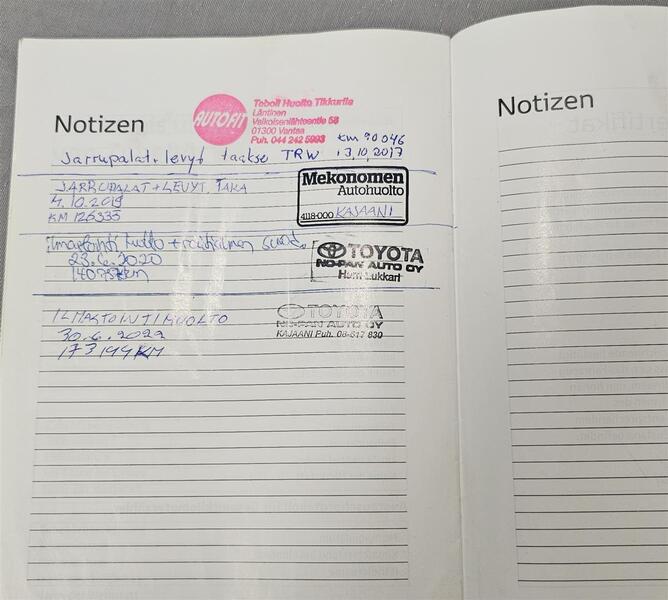 Notizen
AUTOFIT
Teboil Huolto Tikkurila
Läntinen
Valkoisenlähteentie 58
01300 Vantaa
Puh. 044 242 5993
km 90046
Jarrupalat + levyt taakse TRW 13.10.2017
JARRUPALAT + LEVYT, TAKA
4.10.2019
KM 126335
Mekonomen
Autohuolto
4118-000 KAJAANI
Ilmastointi huolto +
23.6.2020
TOYOTA
NO-PAN AUTO OY
Harri Lukkari
ILMASTOINTIHUOLTO
30.6.2022
173199 KM
TOYOTA
NO-PAN AUTO OY
KAJAANI Puh. 08-617 830
Notizen